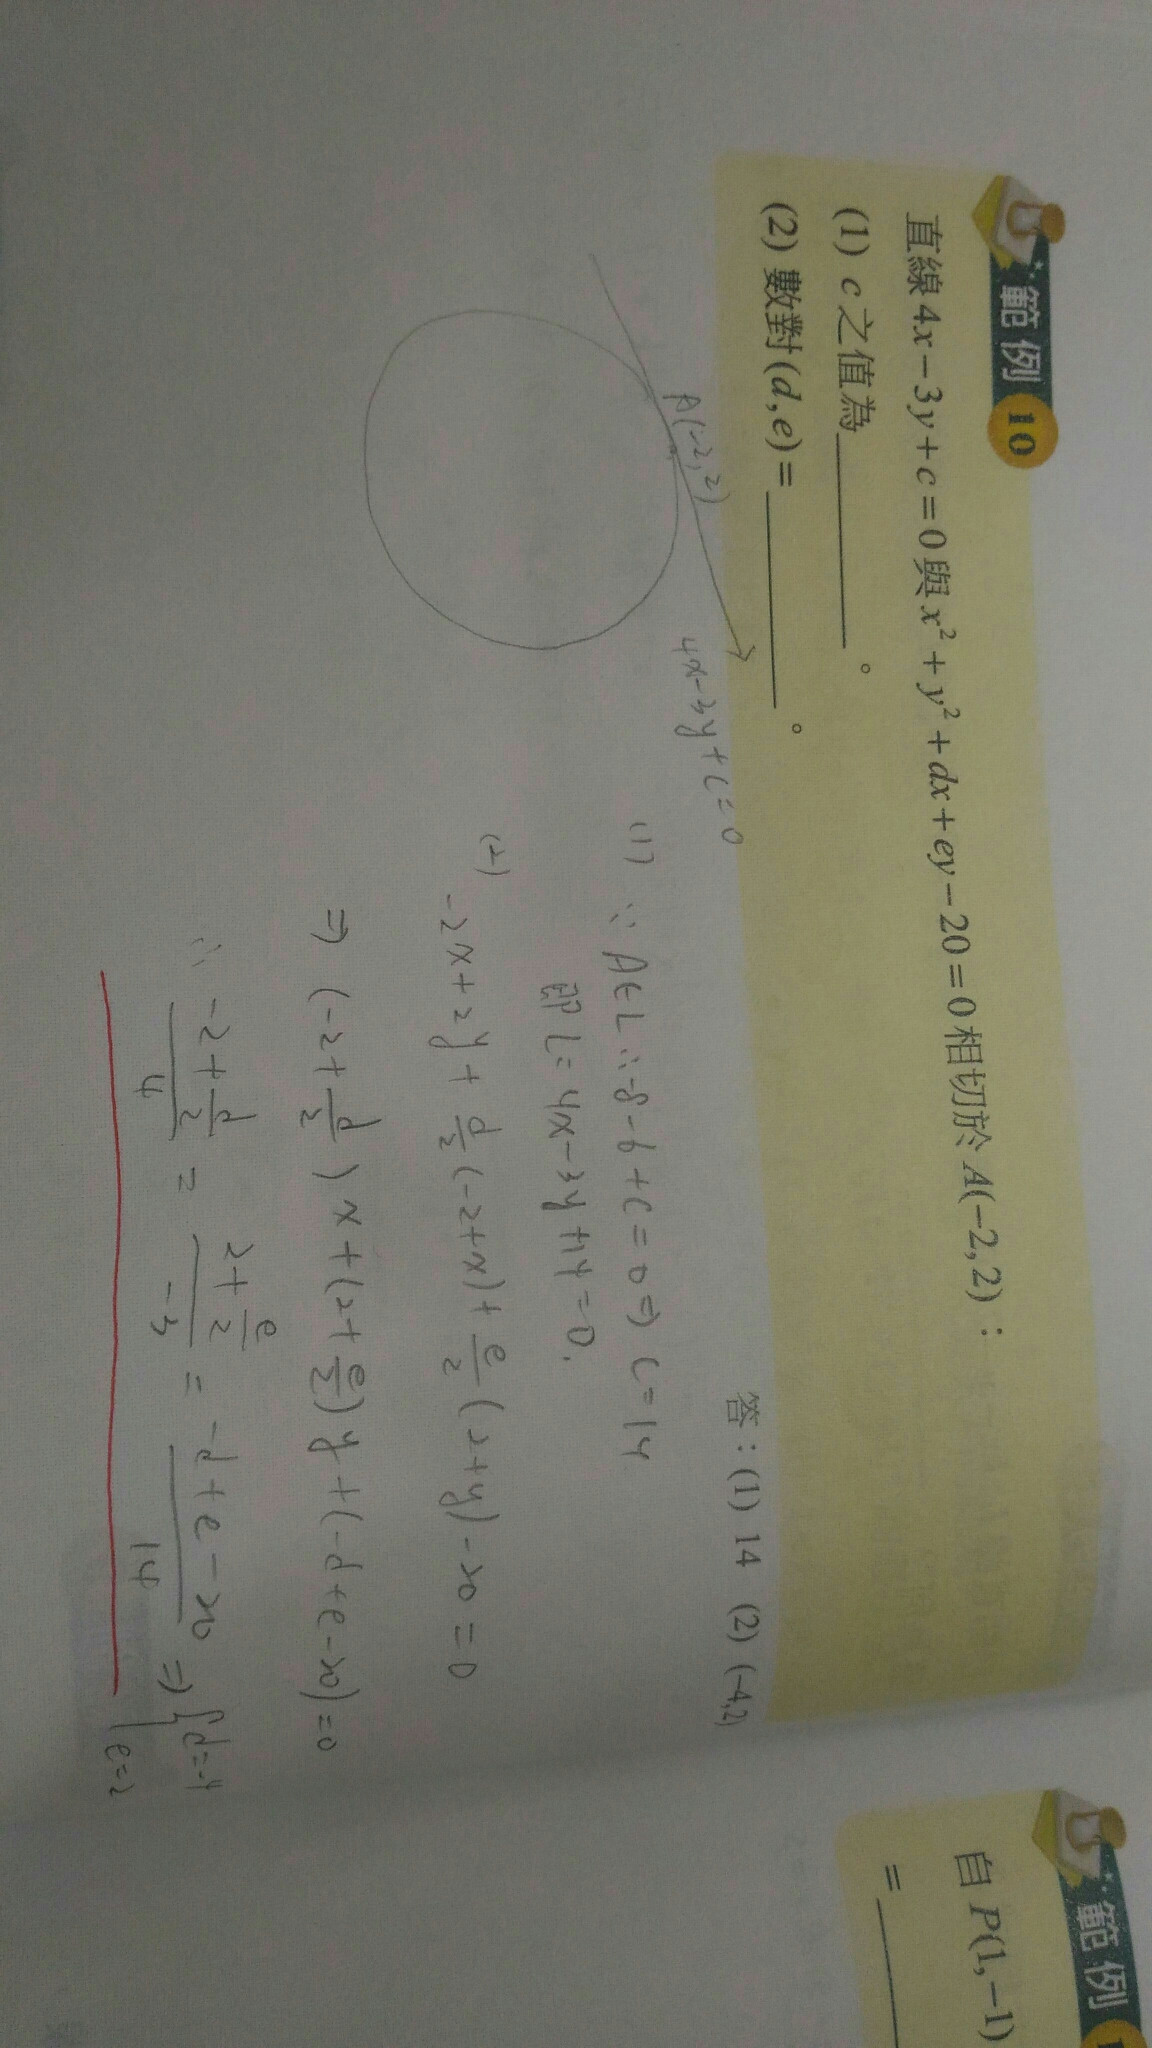 範例 10
直線4x-3y+c=0與x²+y²+dx+ey-20=0相切於A(-2,2)：
(1) c之值為________。
(2) 數對(d,e)=________。
答：(1) 14 (2) (-4,2)
A(-2,2)
4x-3y+c=0
(1) ∵ A∈L ∴ -8-6+c=0 ⇒ c=14
即L=4x-3y+14=0.
(2)
-2x+2y+d/2(-2+x)+e/2(2+y)-20=0
⇒ (-2+d/2)x+(2+e/2)y+(-d+e-20)=0
∴ (-2+d/2)/4 = (2+e/2)/-3 = (-d+e-20)/14 ⇒ {d=-4
e=2
範例
自P(1,-1)
=________